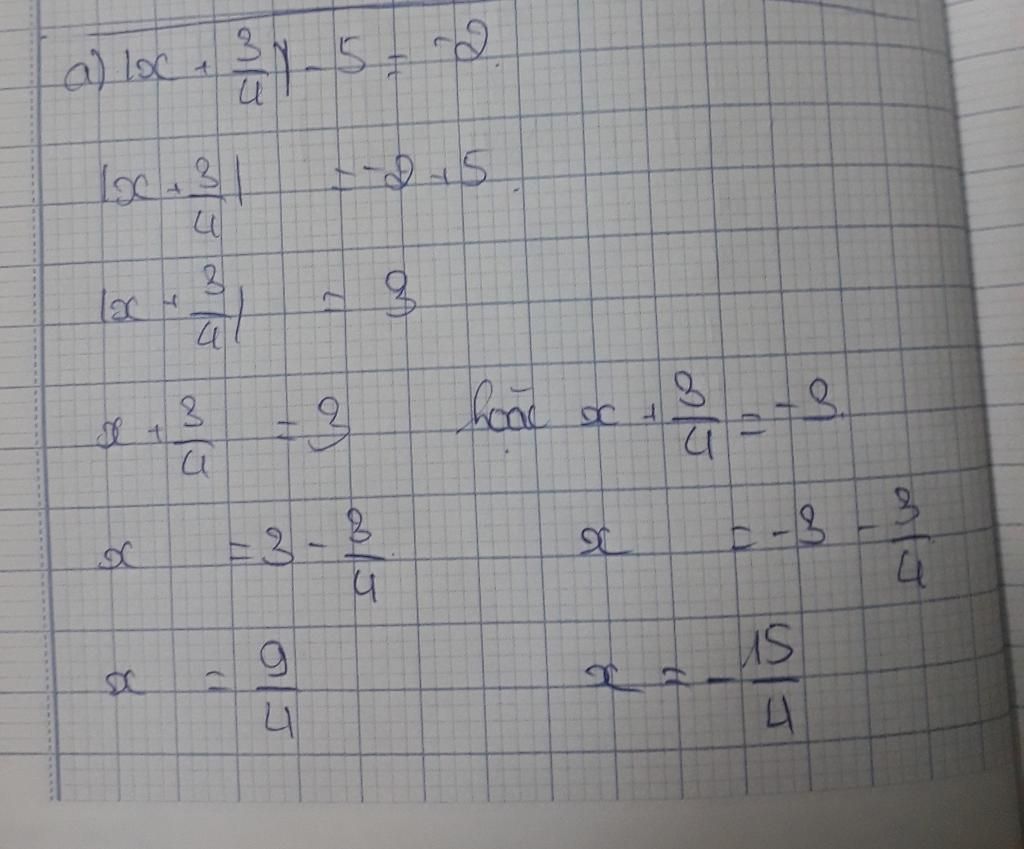 a) |x + 3/4| - 5 = -2
|x + 3/4| = -2 + 5
|x + 3/4| = 3
x + 3/4 = 3 hoặc x + 3/4 = -3
x = 3 - 3/4 x = -3 - 3/4
x = 9/4 x = -15/4